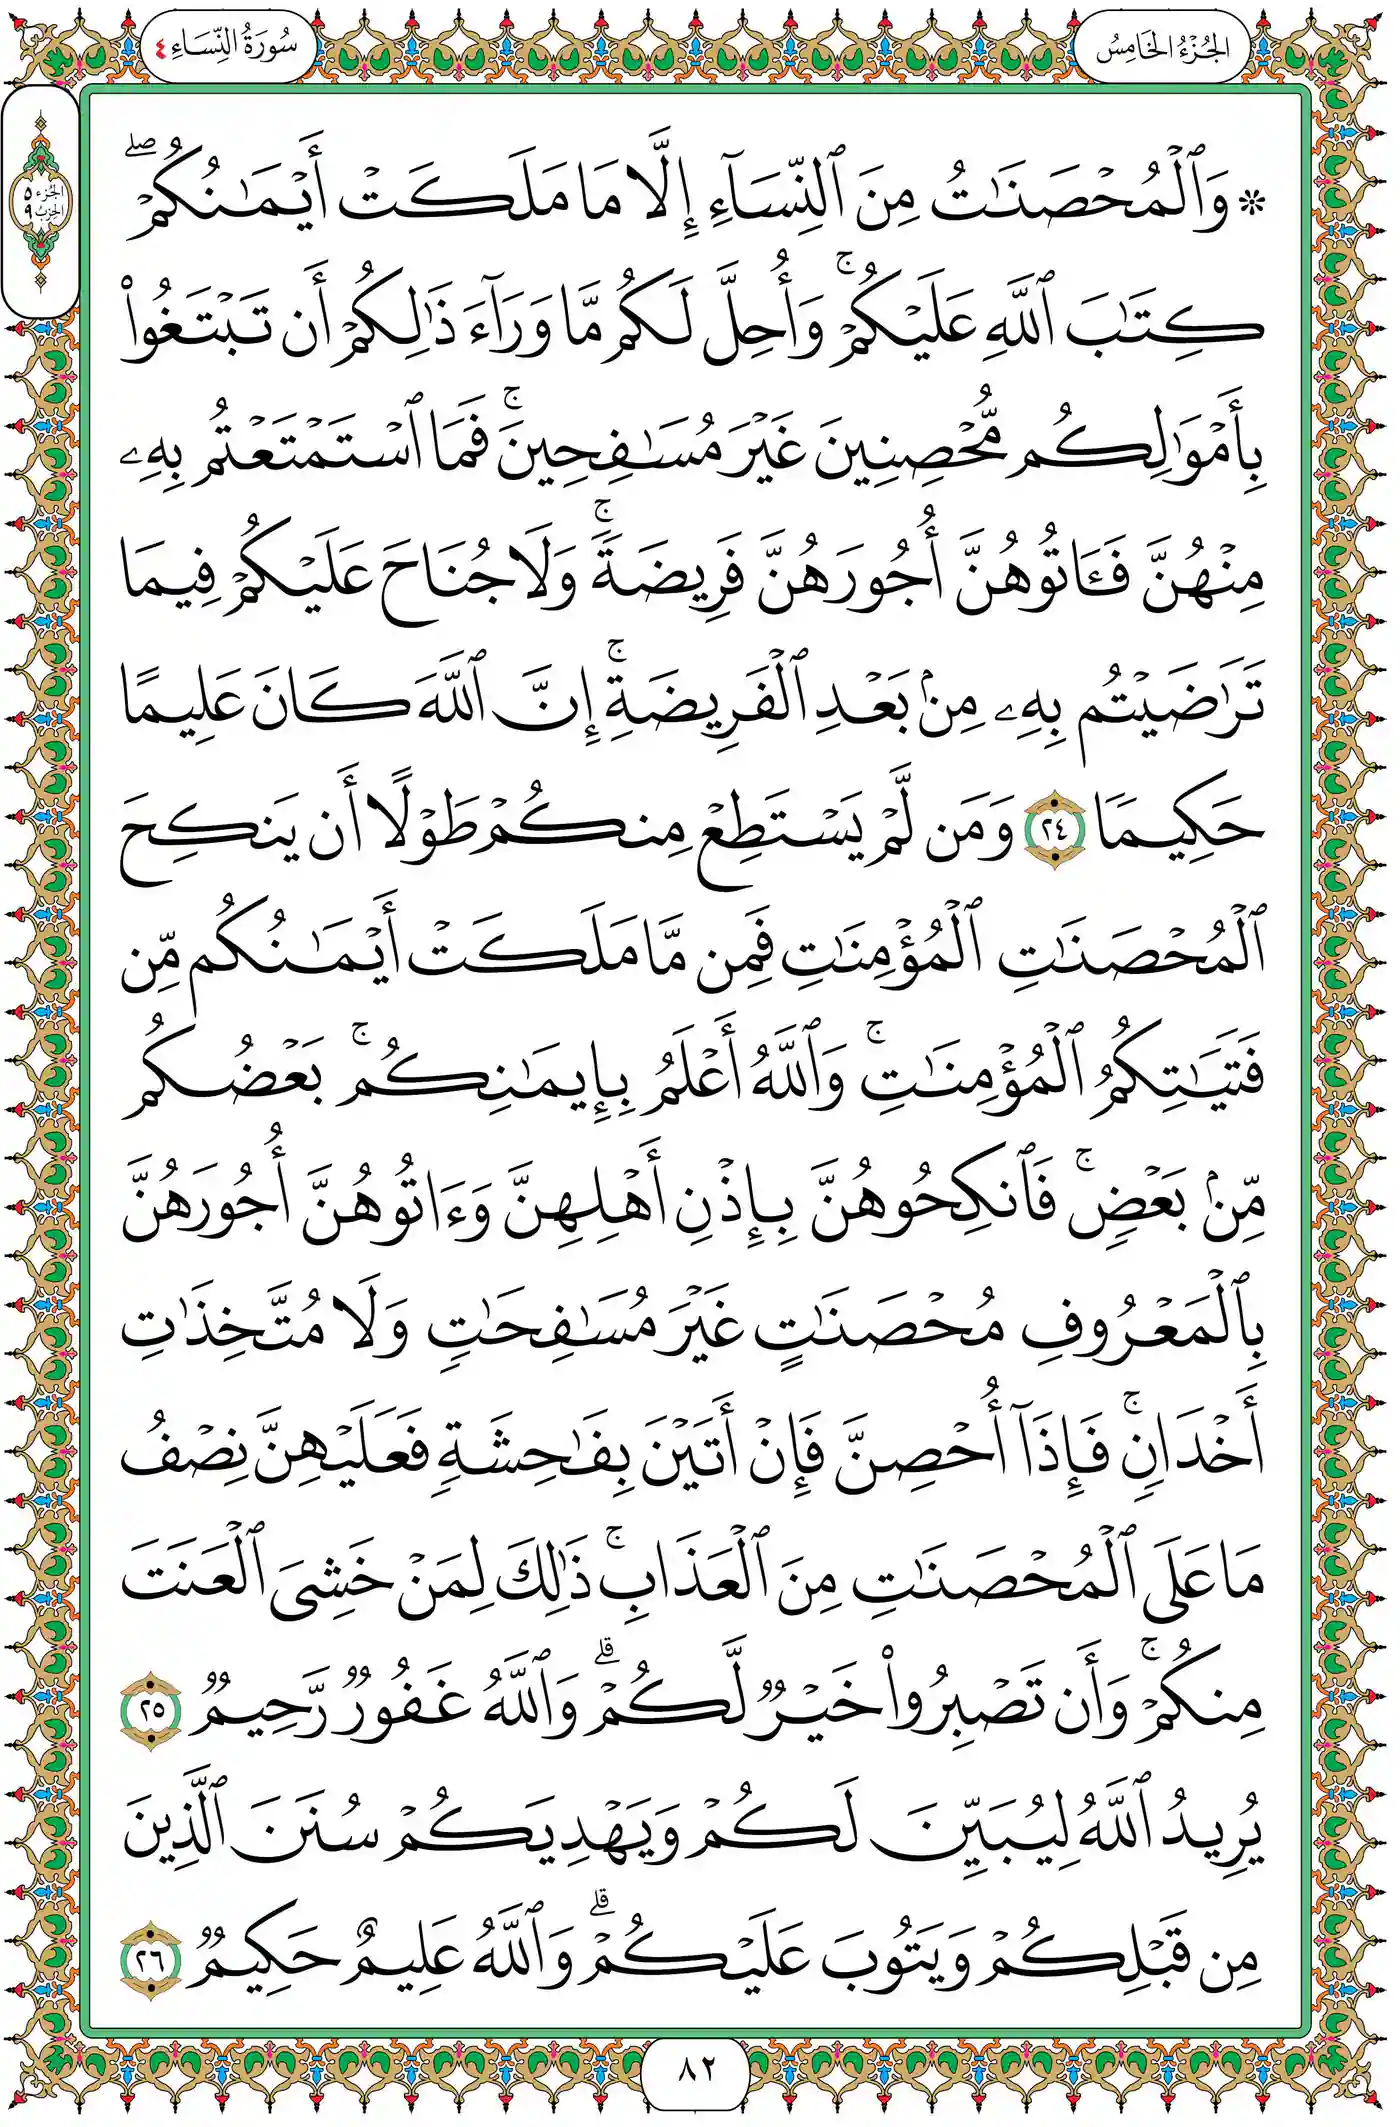 الجُزْءُ الخَامِسُ
سُورَةُ النِّسَاءِ ٤
الجزء ٥
الحزب ٩
۞ وَٱلْمُحْصَنَٰتُ مِنَ ٱلنِّسَآءِ إِلَّا مَا مَلَكَتْ أَيْمَٰنُكُمْۖ
كِتَٰبَ ٱللَّهِ عَلَيْكُمْۚ وَأُحِلَّ لَكُم مَّا وَرَآءَ ذَٰلِكُمْ أَن تَبْتَغُوا۟
بِأَمْوَٰلِكُم مُّحْصِنِينَ غَيْرَ مُسَٰفِحِينَۚ فَمَا ٱسْتَمْتَعْتُم بِهِۦ
مِنْهُنَّ فَـَٔاتُوهُنَّ أُجُورَهُنَّ فَرِيضَةًۚ وَلَا جُنَاحَ عَلَيْكُمْ فِيمَا
تَرَٰضَيْتُم بِهِۦ مِنۢ بَعْدِ ٱلْفَرِيضَةِۚ إِنَّ ٱللَّهَ كَانَ عَلِيمًا
حَكِيمًا ٢٤ وَمَن لَّمْ يَسْتَطِعْ مِنكُمْ طَوْلًا أَن يَنكِحَ
ٱلْمُحْصَنَٰتِ ٱلْمُؤْمِنَٰتِ فَمِن مَّا مَلَكَتْ أَيْمَٰنُكُم مِّن
فَتَيَٰتِكُمُ ٱلْمُؤْمِنَٰتِۚ وَٱللَّهُ أَعْلَمُ بِإِيمَٰنِكُمۚ بَعْضُكُم
مِّنۢ بَعْضٍۚ فَٱنكِحُوهُنَّ بِإِذْنِ أَهْلِهِنَّ وَءَاتُوهُنَّ أُجُورَهُنَّ
بِٱلْمَعْرُوفِ مُحْصَنَٰتٍ غَيْرَ مُسَٰفِحَٰتٍ وَلَا مُتَّخِذَٰتِ
أَخْدَانٍۚ فَإِذَآ أُحْصِنَّ فَإِنْ أَتَيْنَ بِفَٰحِشَةٍ فَعَلَيْهِنَّ نِصْفُ
مَا عَلَى ٱلْمُحْصَنَٰتِ مِنَ ٱلْعَذَابِۚ ذَٰلِكَ لِمَنْ خَشِىَ ٱلْعَنَتَ
مِنكُمْۚ وَأَن تَصْبِرُوا۟ خَيْرٌ لَّكُمْۗ وَٱللَّهُ غَفُورٌ رَّحِيمٌ ٢٥
يُرِيدُ ٱللَّهُ لِيُبَيِّنَ لَكُمْ وَيَهْدِيَكُمْ سُنَنَ ٱلَّذِينَ
مِن قَبْلِكُمْ وَيَتُوبَ عَلَيْكُمْۗ وَٱللَّهُ عَلِيمٌ حَكِيمٌ ٢٦
٨٢